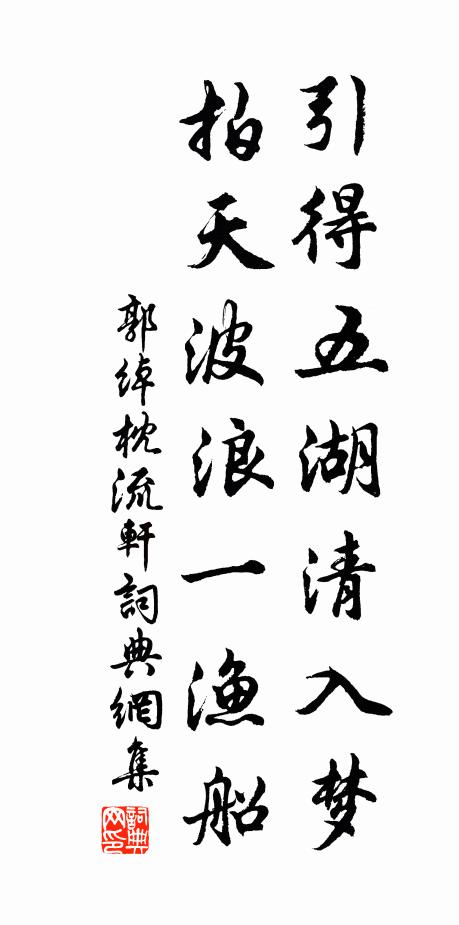 引得五湖清入梦
拍天波浪一漁船
郭綽枕流軒詞典網集
詞典网印